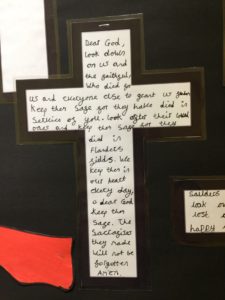 Dear God,
Look down
on us and
the faithful,
Who died for
us and everyone else to grant us
Keep them safe for they have did in
Service of you. Look after their
ones and keep them safe for they
did in
Flanders
fields. We
keep them in
our heart
every day,
o dear God
keep them
safe. The
Sacrafices
they made
will not be
forgotten
Amen.
Soildiers
look
lost
happy